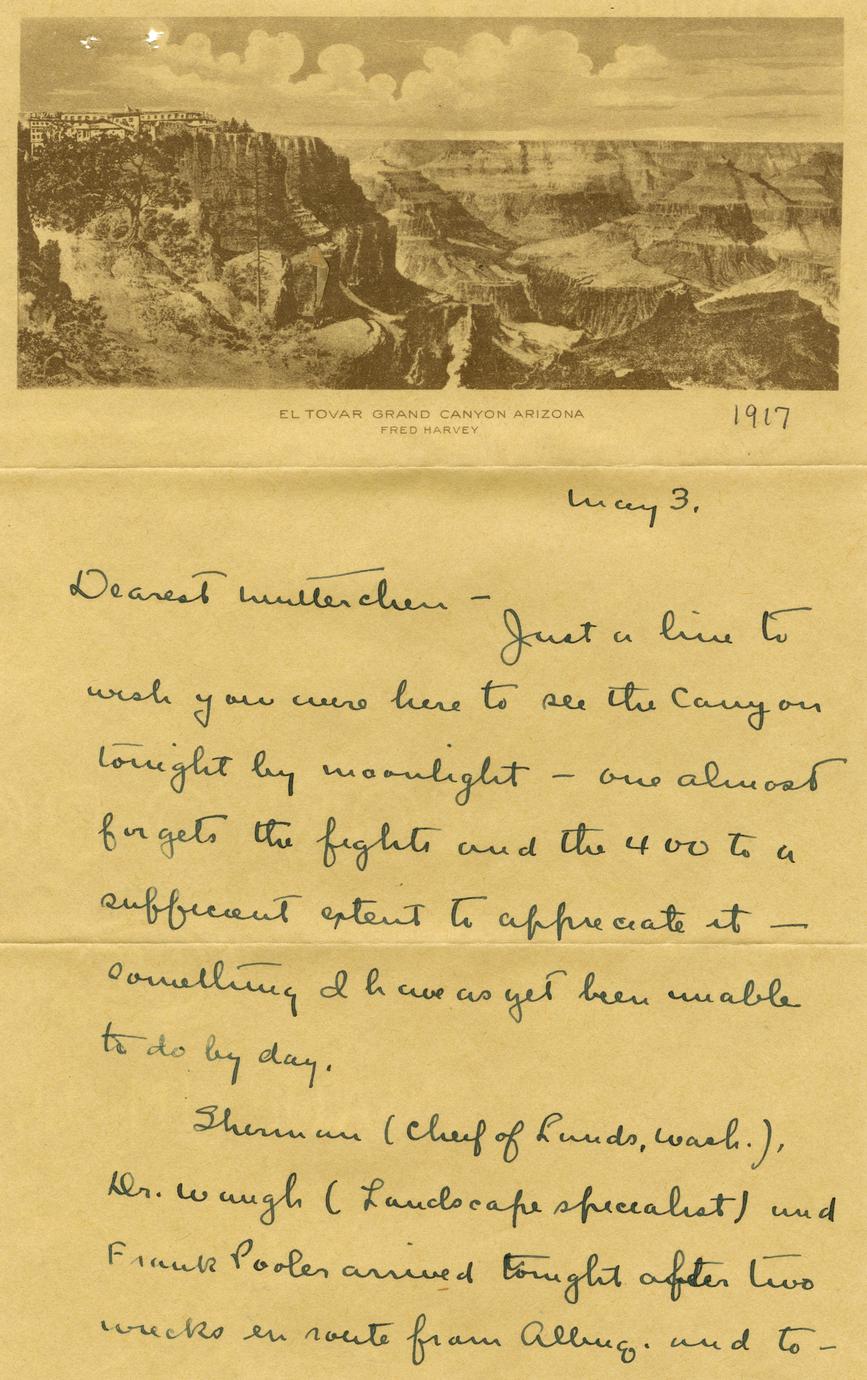 EL TOVAR GRAND CANYON ARIZONA
FRED HARVEY
1917
May 3.
Dearest Mutterchen –
Just a line to
wish you were here to see the Canyon
tonight by moonlight – one almost
forgets the fights and the 400 to a
sufficient extent to appreciate it –
something I have as yet been unable
to do by day.
Sherman (Chief of Lands, Wash.),
Dr. Waugh (Landscape specialist) and
Frank Pooler arrived tonight after two
wrecks en route from Albuq. and to-